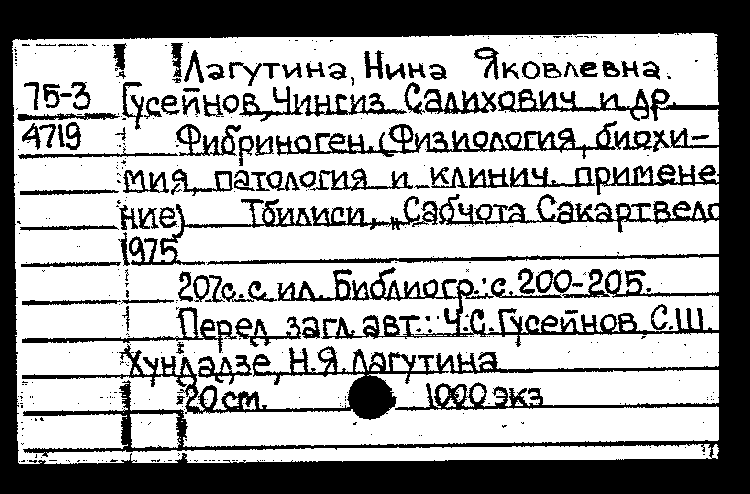 Лагутина, Нина Яковлевна.
75-3 Гусейнов, Чингиз Салихович и др.
4719 Фибриноген. (Физиология, биохи-
мия, патология и клинич. примене
ние) Тбилиси, „Сабчота Сакартвело
1975
207с. с ил. Библиогр.: с. 200-205.
Перед загл. авт.: Ч.С. Гусейнов, С.Ш.
Хундадзе, Н.Я. Лагутина
20 cm. 1000 экз